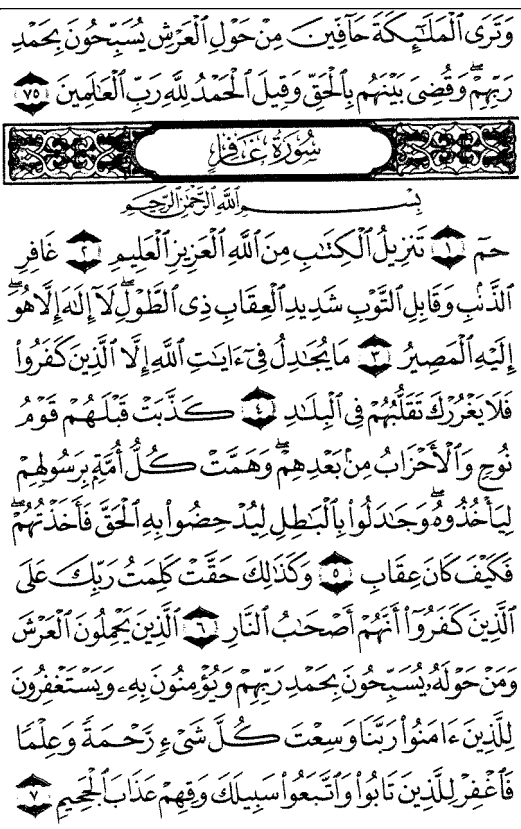 وَتَرَى ٱلْمَلَٰٓئِكَةَ حَآفِّينَ مِنْ حَوْلِ ٱلْعَرْشِ يُسَبِّحُونَ بِحَمْدِ
رَبِّهِمْۖ وَقُضِىَ بَيْنَهُم بِٱلْحَقِّ وَقِيلَ ٱلْحَمْدُ لِلَّهِ رَبِّ ٱلْعَٰلَمِينَ ٧٥
سُورَةُ غَافِرٍ
بِسْمِ ٱللَّهِ ٱلرَّحْمَٰنِ ٱلرَّحِيمِ
حمٓ ١ تَنزِيلُ ٱلْكِتَٰبِ مِنَ ٱللَّهِ ٱلْعَزِيزِ ٱلْعَلِيمِ ٢ غَافِرِ
ٱلذَّنۢبِ وَقَابِلِ ٱلتَّوْبِ شَدِيدِ ٱلْعِقَابِ ذِى ٱلطَّوْلِۖ لَآ إِلَٰهَ إِلَّا هُوَۖ
إِلَيْهِ ٱلْمَصِيرُ ٣ مَا يُجَٰدِلُ فِىٓ ءَايَٰتِ ٱللَّهِ إِلَّا ٱلَّذِينَ كَفَرُوا۟
فَلَا يَغْرُرْكَ تَقَلُّبُهُمْ فِى ٱلْبِلَٰدِ ٤ كَذَّبَتْ قَبْلَهُمْ قَوْمُ
نُوحٍ وَٱلْأَحْزَابُ مِنۢ بَعْدِهِمْۖ وَهَمَّتْ كُلُّ أُمَّةٍۭ بِرَسُولِهِمْ
لِيَأْخُذُوهُۖ وَجَٰدَلُوا۟ بِٱلْبَٰطِلِ لِيُدْحِضُوا۟ بِهِ ٱلْحَقَّ فَأَخَذْتُهُمْۖ
فَكَيْفَ كَانَ عِقَابِ ٥ وَكَذَٰلِكَ حَقَّتْ كَلِمَتُ رَبِّكَ عَلَى
ٱلَّذِينَ كَفَرُوٓا۟ أَنَّهُمْ أَصْحَٰبُ ٱلنَّارِ ٦ ٱلَّذِينَ يَحْمِلُونَ ٱلْعَرْشَ
وَمَنْ حَوْلَهُۥ يُسَبِّحُونَ بِحَمْدِ رَبِّهِمْ وَيُؤْمِنُونَ بِهِۦ وَيَسْتَغْفِرُونَ
لِلَّذِينَ ءَامَنُوا۟ رَبَّنَا وَسِعْتَ كُلَّ شَىْءٍ رَّحْمَةً وَعِلْمًا
فَٱغْفِرْ لِلَّذِينَ تَابُوا۟ وَٱتَّبَعُوا۟ سَبِيلَكَ وَقِهِمْ عَذَابَ ٱلْجَحِيمِ ٧